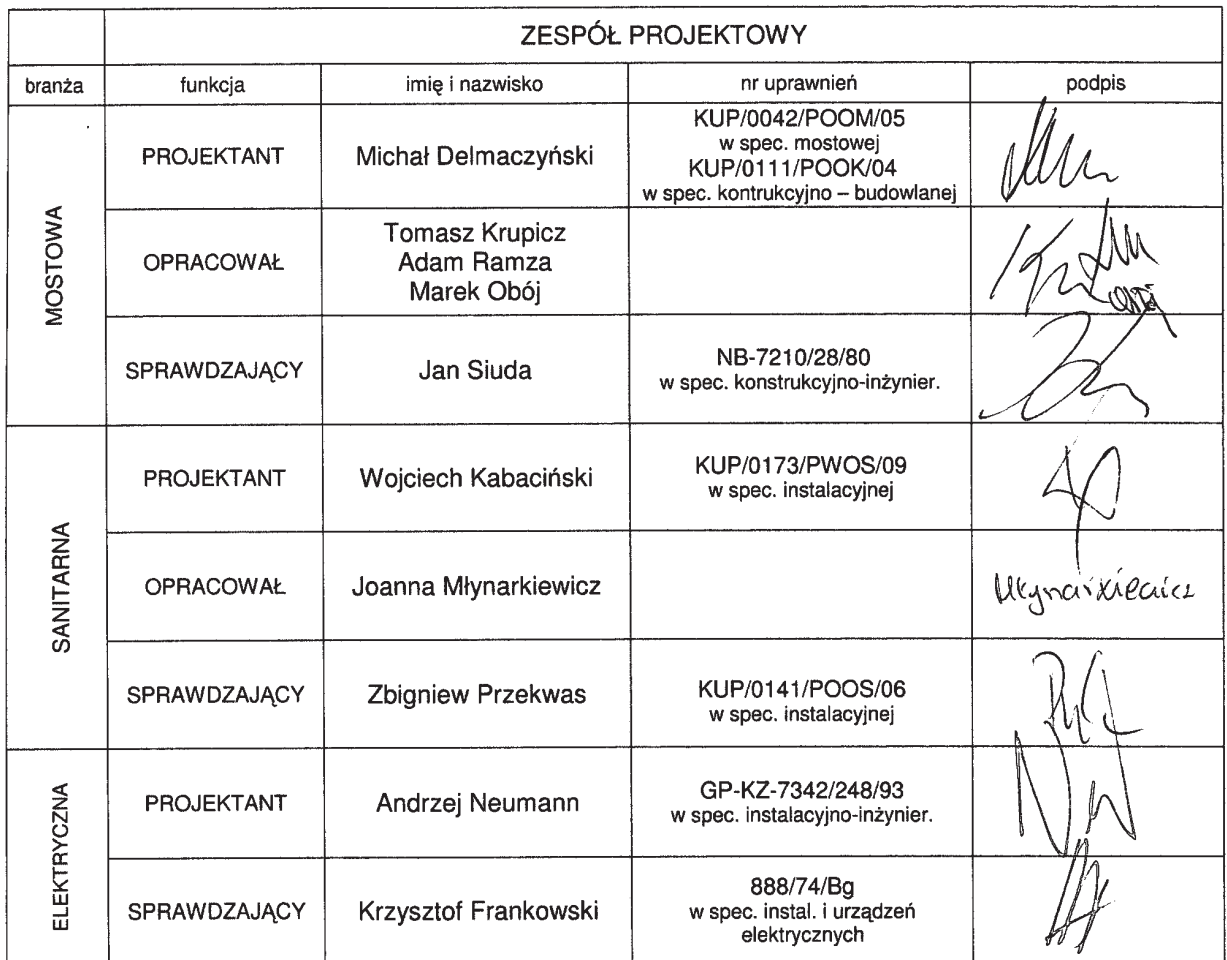 ZESPÓŁ PROJEKTOWY
branża funkcja imię i nazwisko nr uprawnień podpis
MOSTOWA
PROJEKTANT Michał Delmaczyński KUP/0042/POOM/05
w spec. mostowej
KUP/0111/POOK/04
w spec. kontrukcyjno – budowlanej
OPRACOWAŁ Tomasz Krupicz
Adam Ramza
Marek Obój
SPRAWDZAJĄCY Jan Siuda NB-7210/28/80
w spec. konstrukcyjno-inżynier.
SANITARNA
PROJEKTANT Wojciech Kabaciński KUP/0173/PWOS/09
w spec. instalacyjnej
OPRACOWAŁ Joanna Młynarkiewicz Młynarkiewicz
SPRAWDZAJĄCY Zbigniew Przekwas KUP/0141/POOS/06
w spec. instalacyjnej
ELEKTRYCZNA
PROJEKTANT Andrzej Neumann GP-KZ-7342/248/93
w spec. instalacyjno-inżynier.
SPRAWDZAJĄCY Krzysztof Frankowski 888/74/Bg
w spec. instal. i urządzeń
elektrycznych